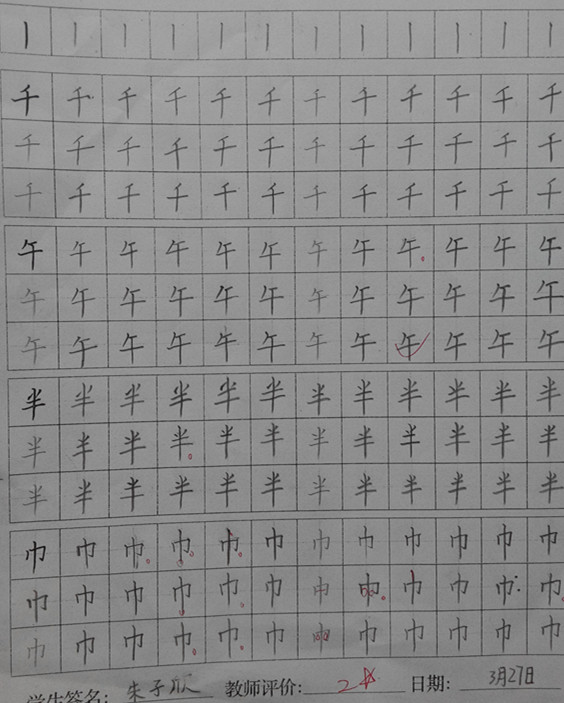 丨 丨 丨 丨 丨 丨 丨 丨 丨 丨 丨 丨
千 千 千 千 千 千 千 千 千 千 千 千
千 千 千 千 千 千 千 千 千 千 千 千
千 千 千 千 千 千 千 千 千 千 千 千
午 午 午 午 午 午 午 午 午 午 午 午
午 午 午 午 午 午 午 午 午 午 午 午
午 午 午 午 午 午 午 午 午 午 午 午
半 半 半 半 半 半 半 半 半 半 半 半
半 半 半 半 半 半 半 半 半 半 半 半
半 半 半 半 半 半 半 半 半 半 半 半
巾 巾 巾 巾 巾 巾 巾 巾 巾 巾 巾 巾
巾 巾 巾 巾 巾 巾 巾 巾 巾 巾 巾 巾
巾 巾 巾 巾 巾 巾 巾 巾 巾 巾 巾 巾
学生签名: 朱子 教师评价: 2☆ 日期: 3月27日